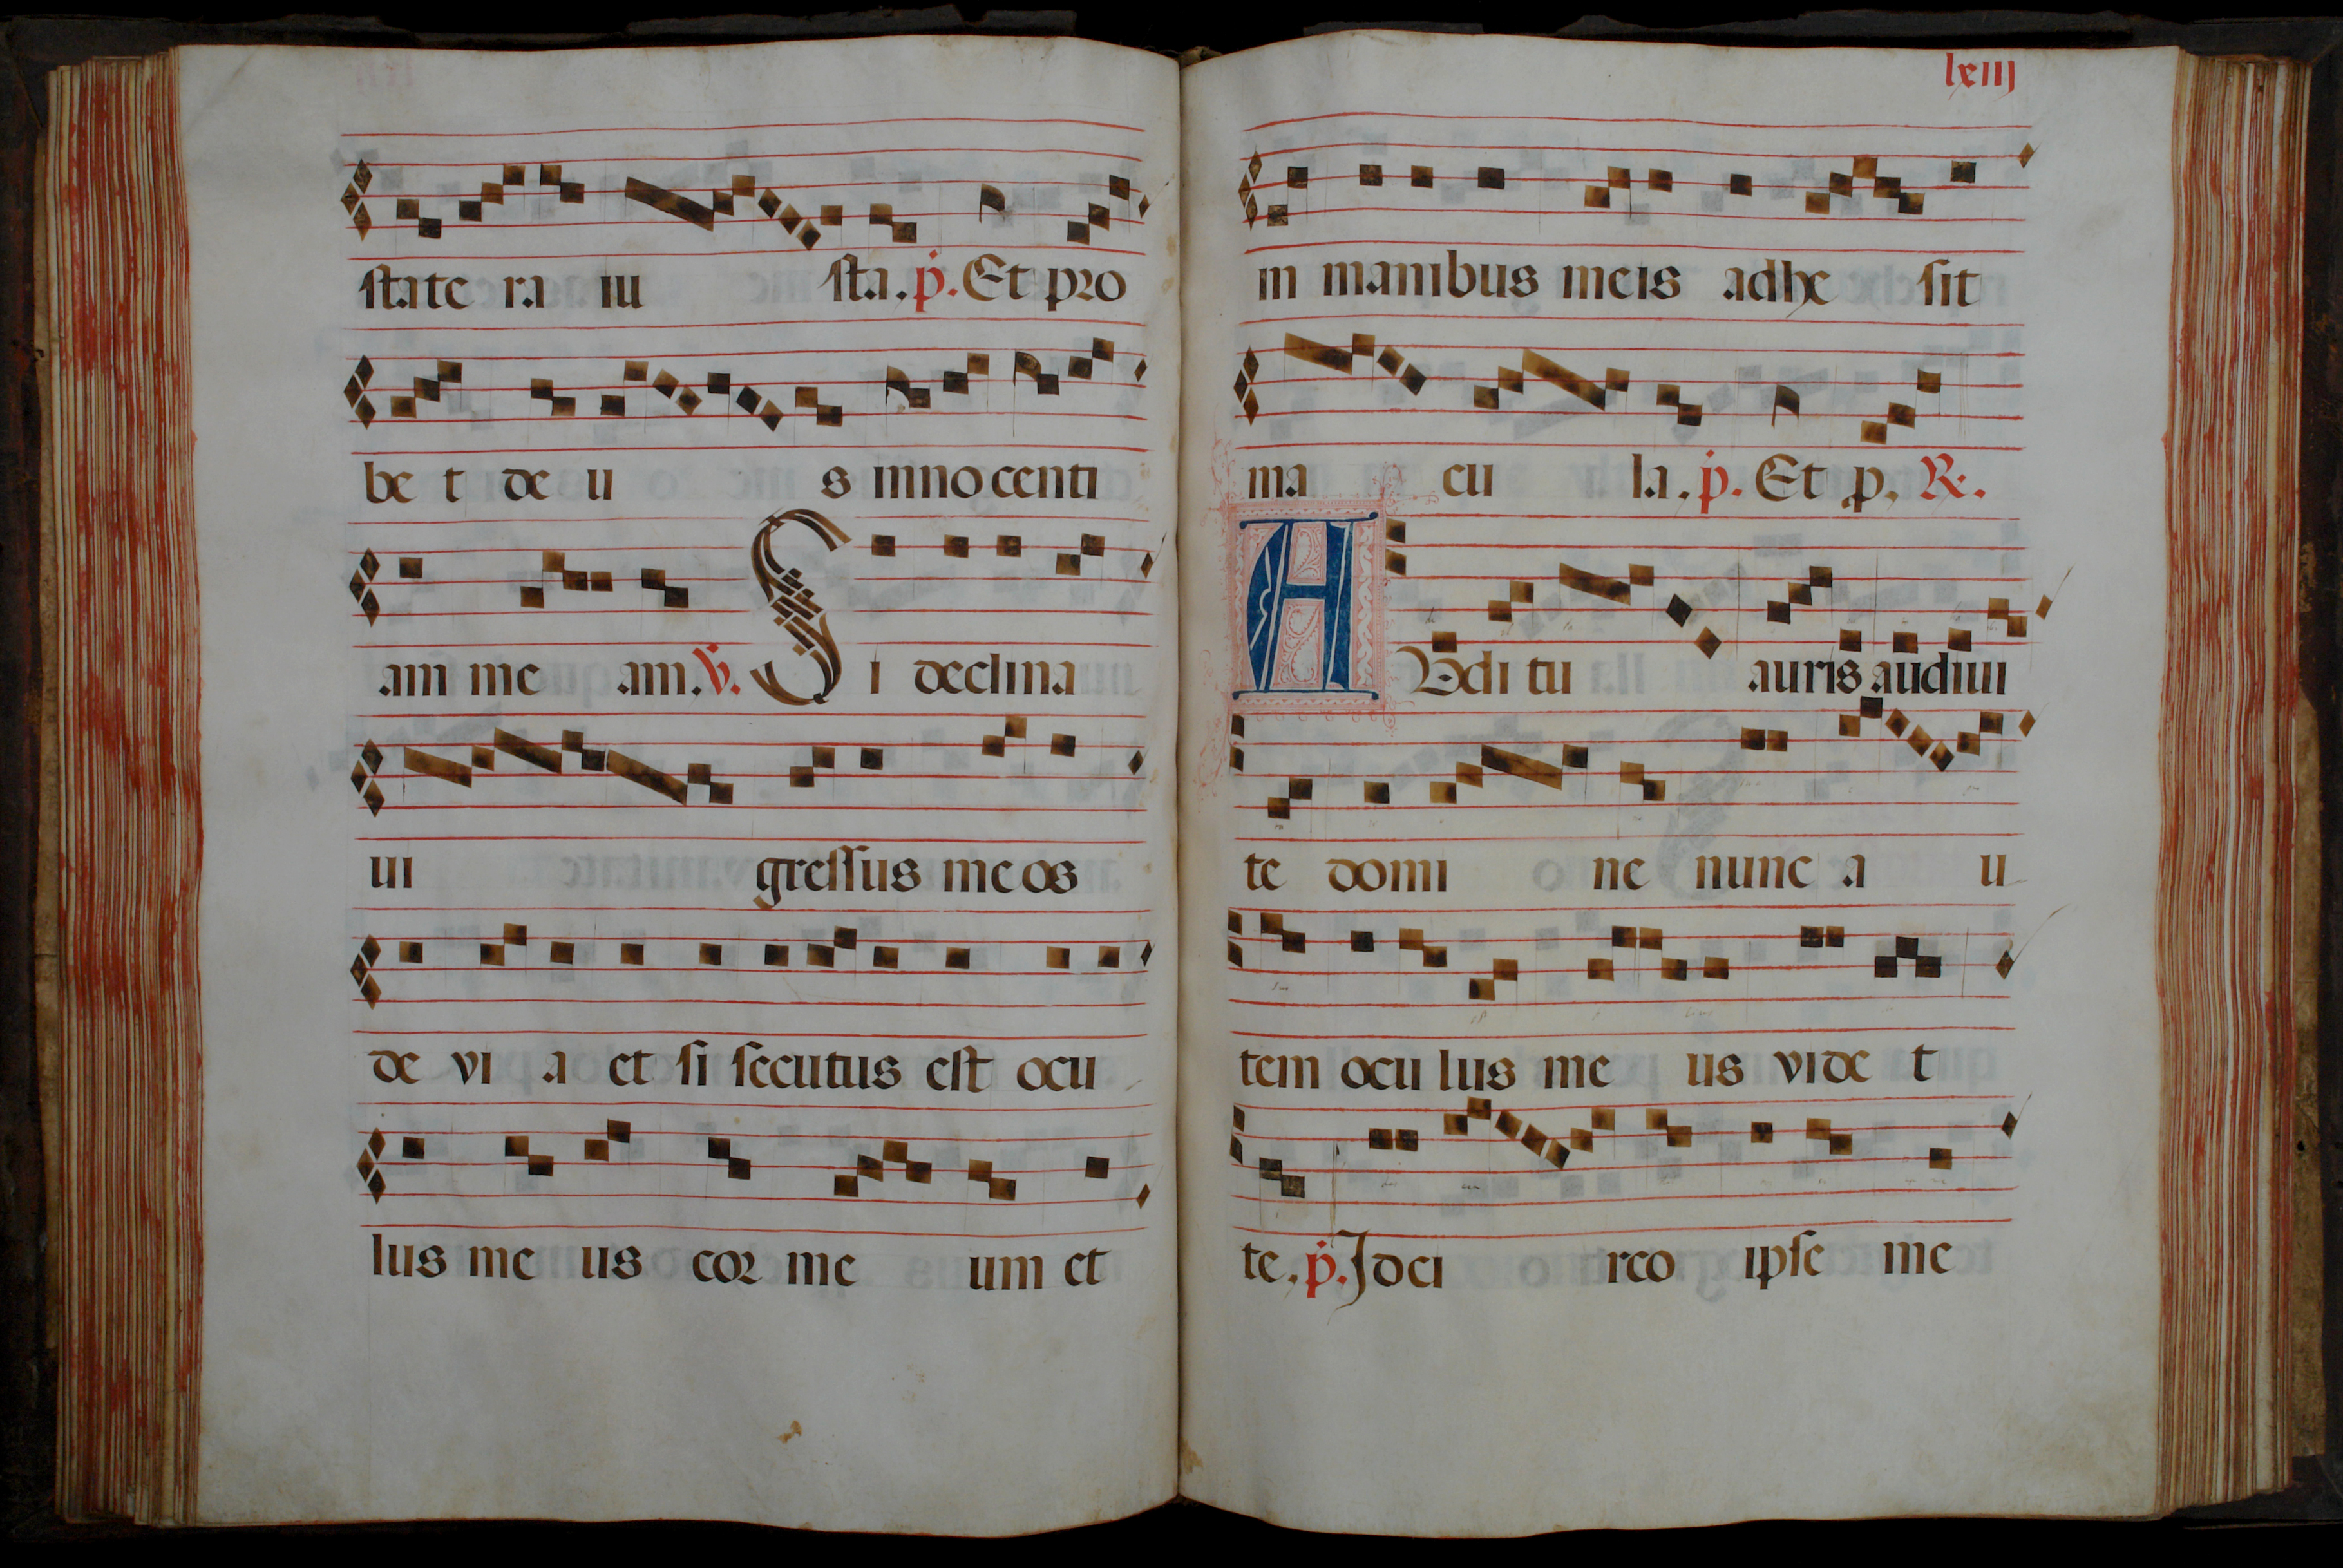 state ra iu sta. p. Et pro
be t de u s innocenti
am me am. V. Si declina
ui gressus meos
de vi a et si secutus est ocu
lus me us cor me um et
lxiij
in manibus meis adhe sit
ma cu la. p. Et p. R.
AUdi tu auris audiui
te domi ne nunc a u
tem ocu lus me us vide t
te. p. Idci rco ipse me